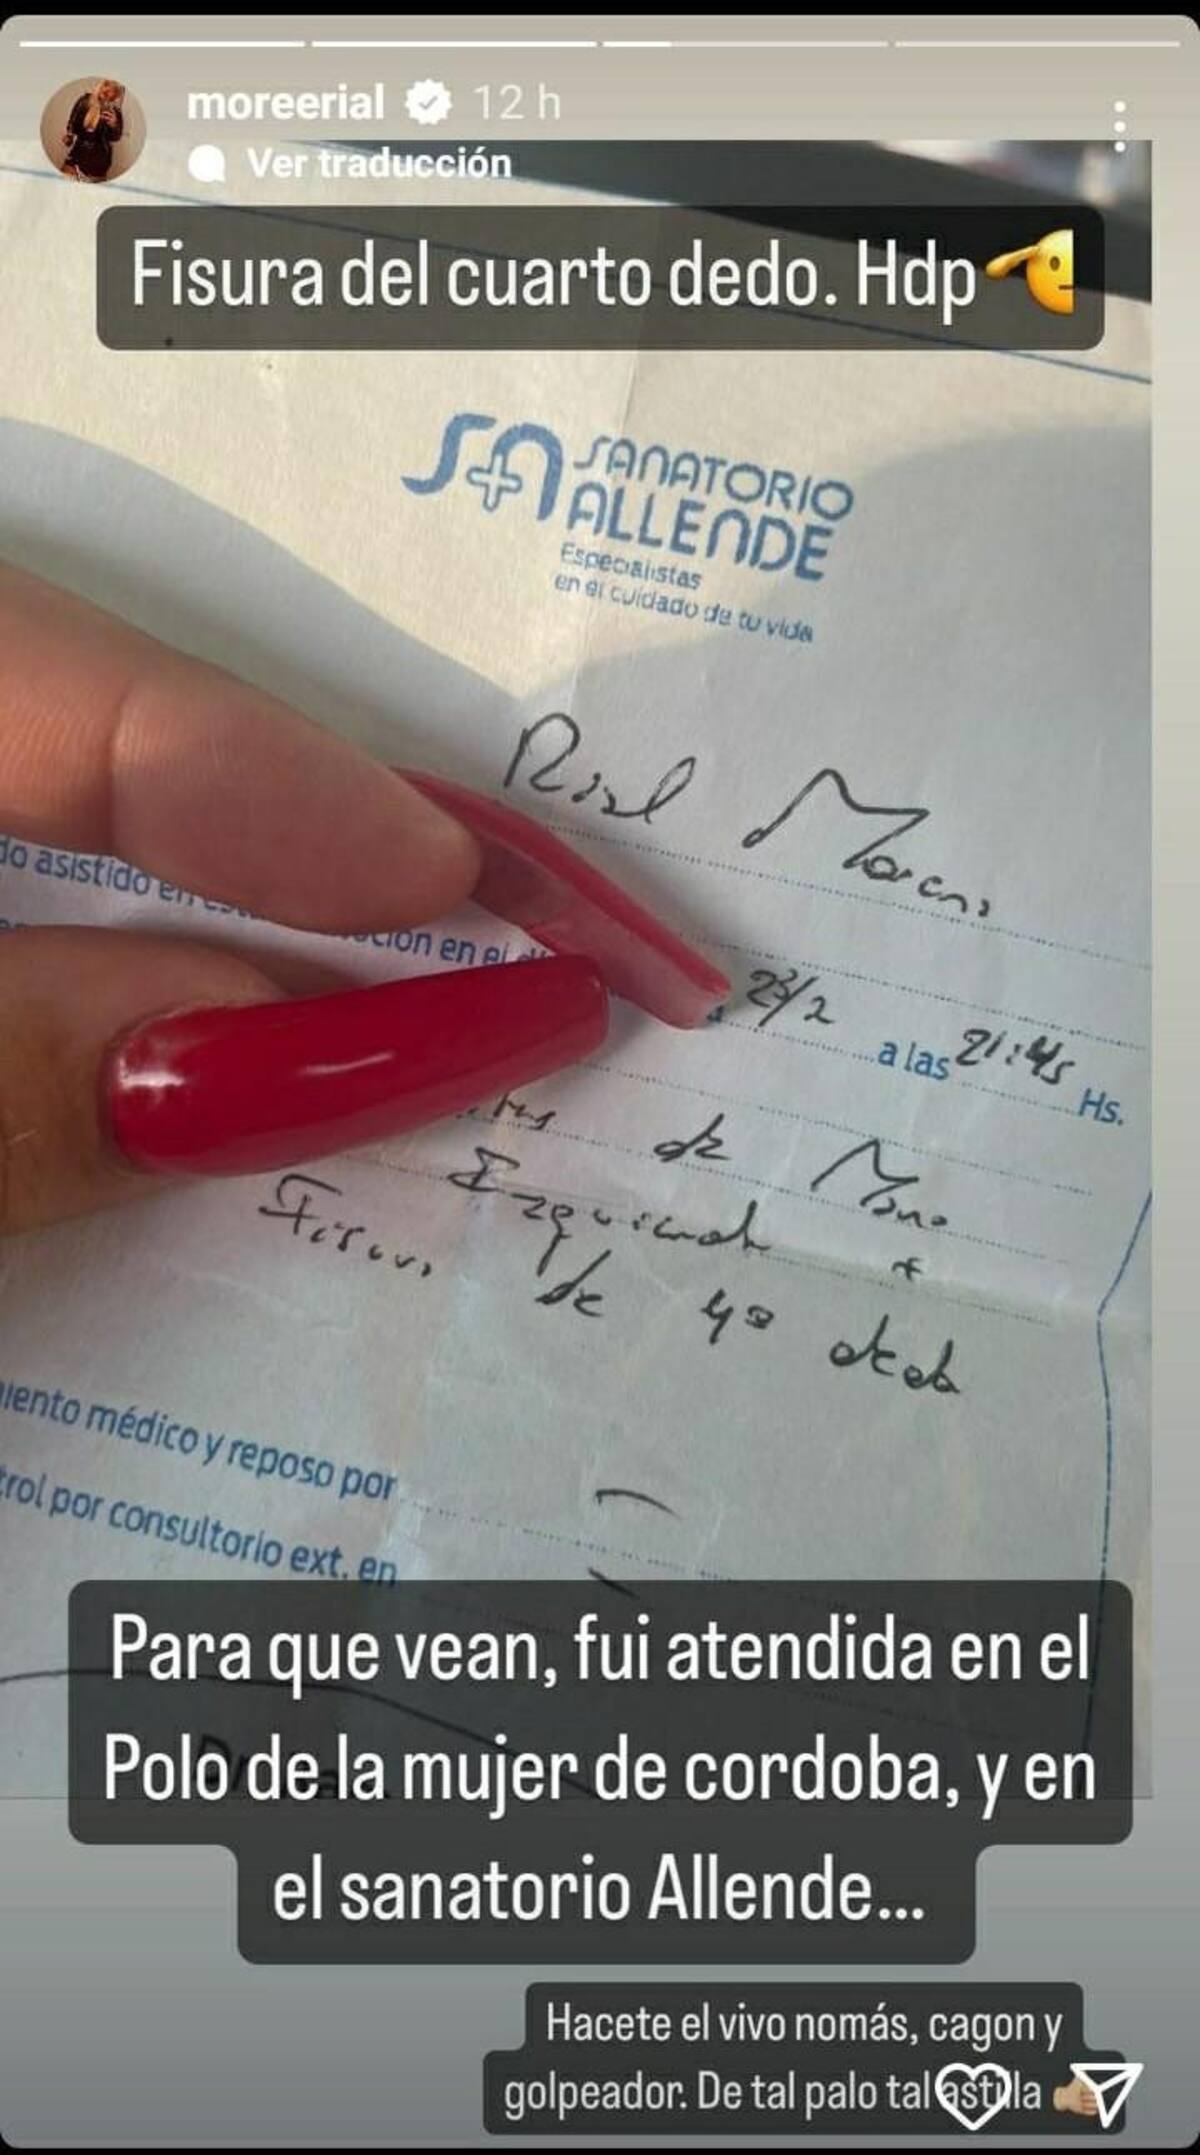 moreerial 12 h
Ver traducción
Fisura del cuarto dedo. Hdp
SANATORIO
ALLENDE
Especialistas
en el cuidado de tu vida
Rial Morena
do asistido en
en el
23/2 a las 21:45 Hs.
de Mano
Izquierda +
Fisura de 4º dedo
iento médico y reposo por
trol por consultorio ext. en
Para que vean, fui atendida en el
Polo de la mujer de cordoba, y en
el sanatorio Allende...
Hacete el vivo nomás, cagon y
golpeador. De tal palo tal astilla